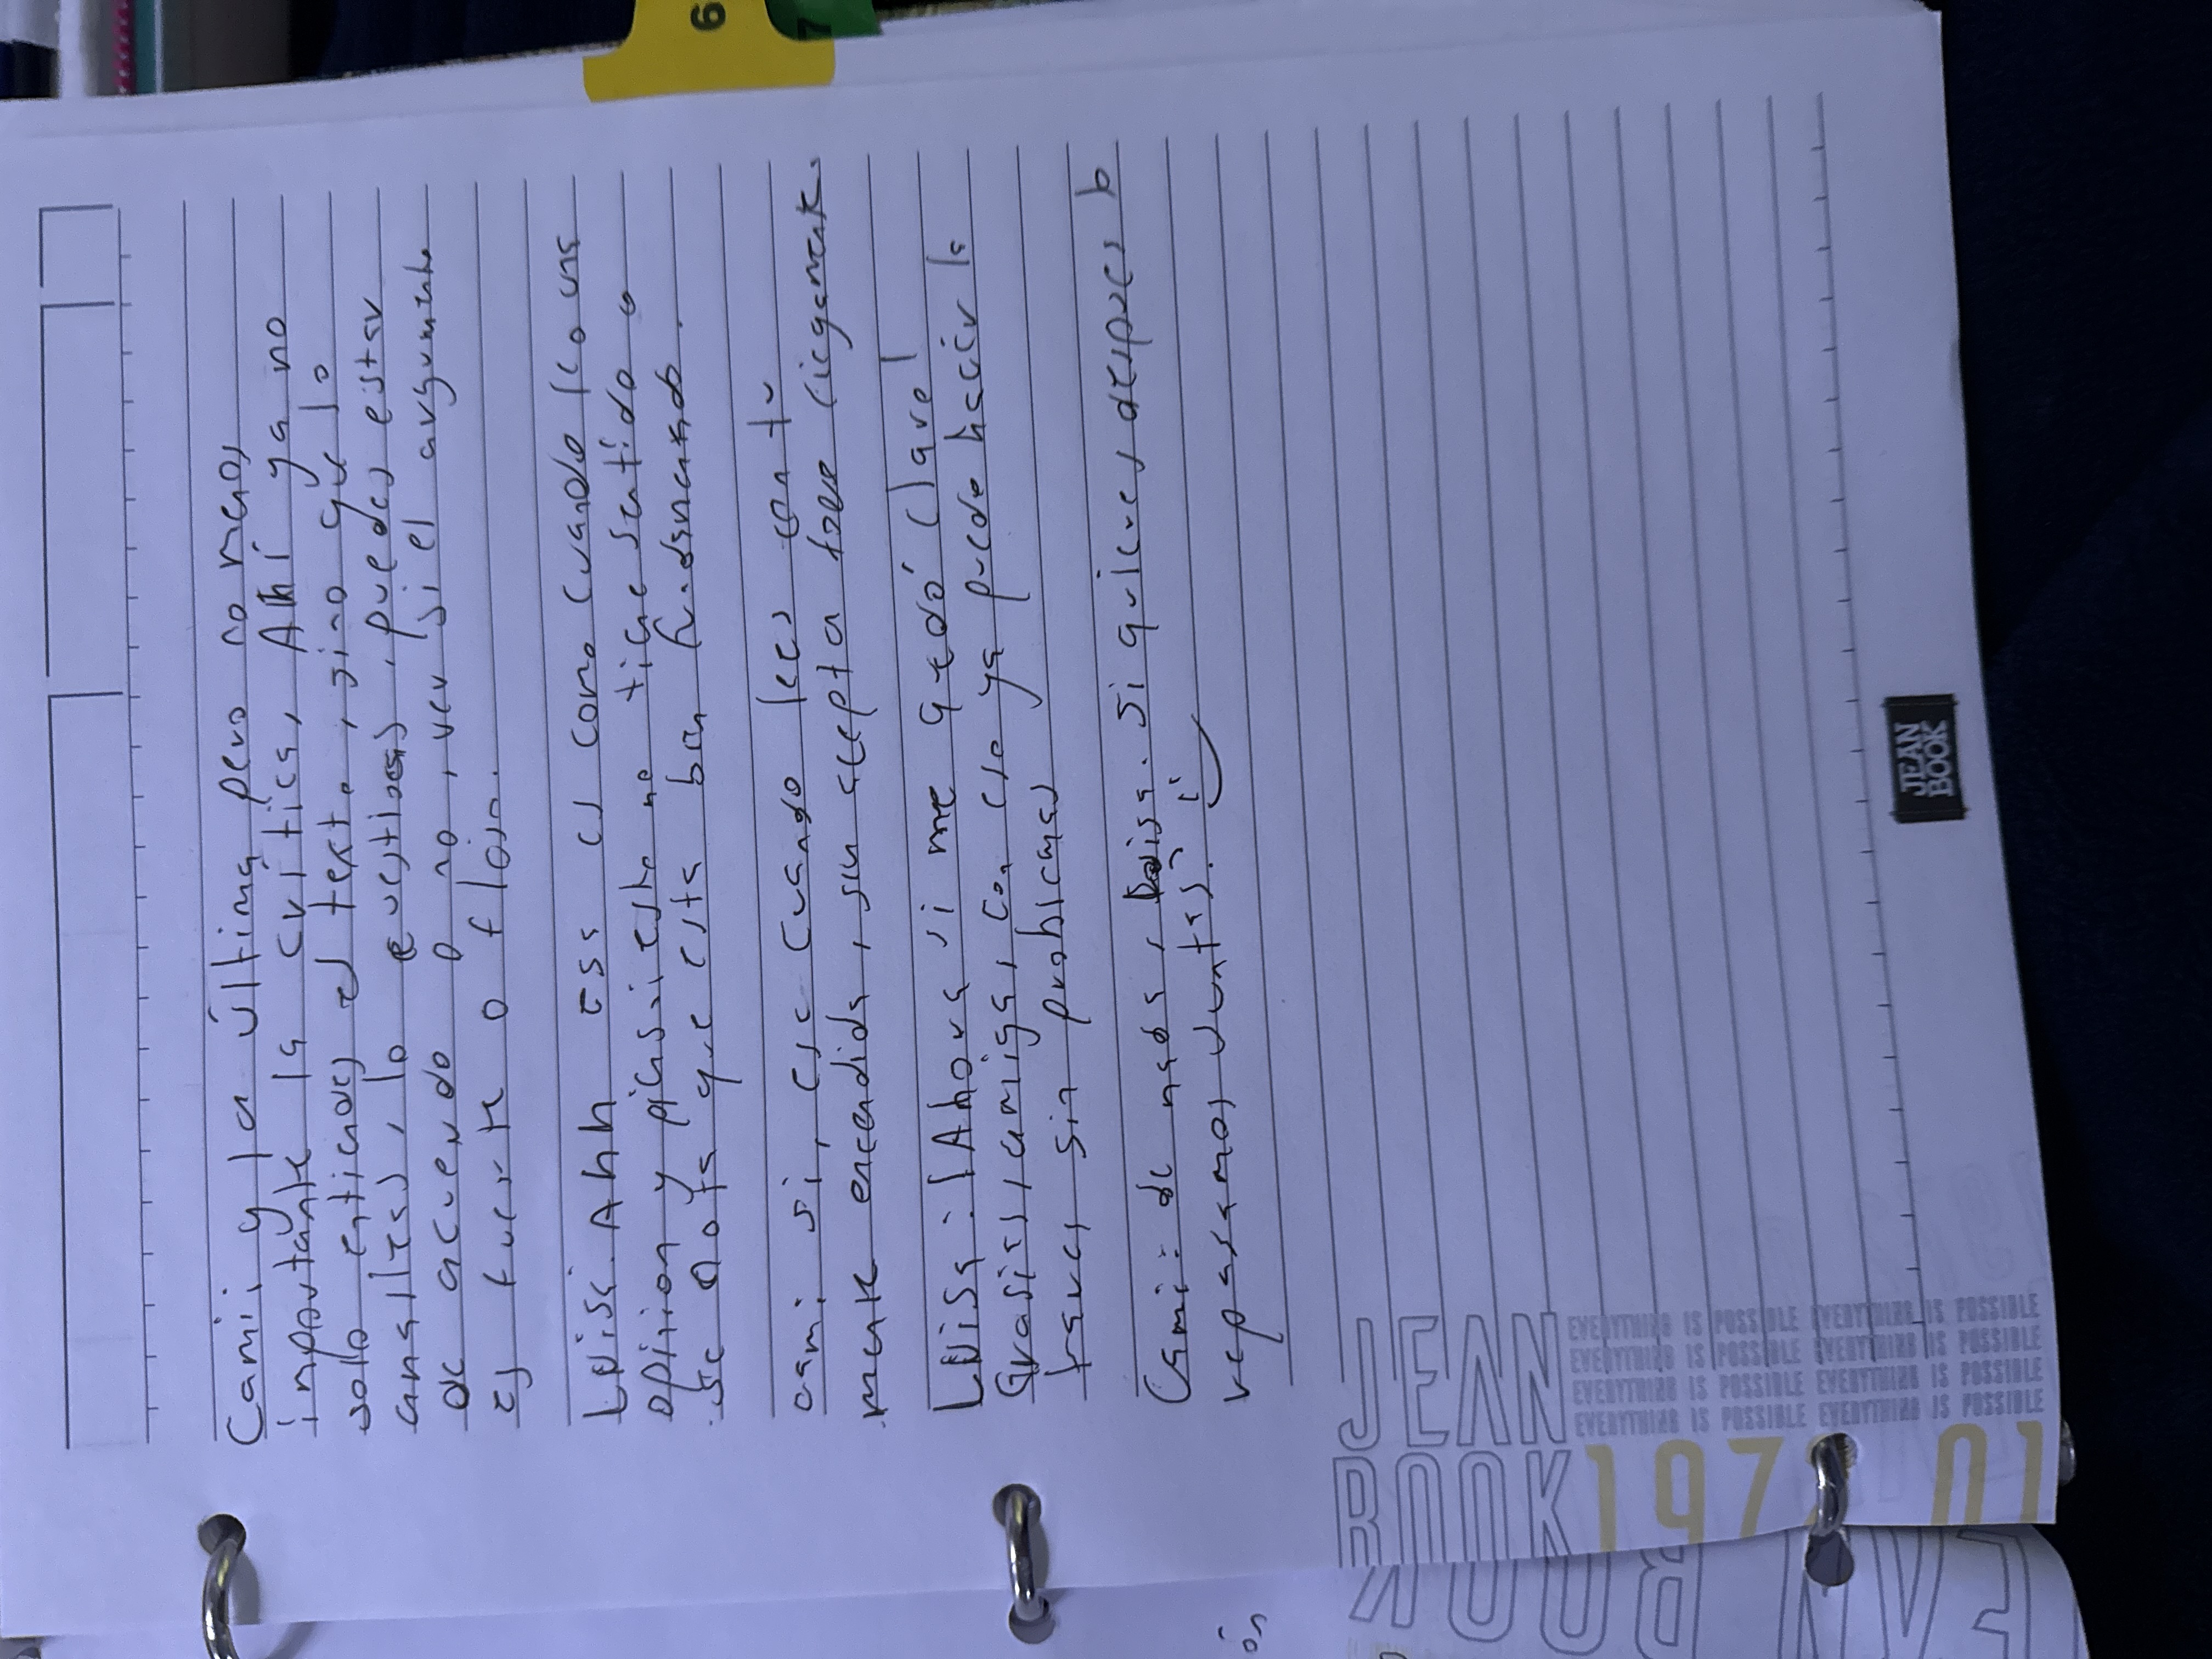 Cami y la última pero no menos
importante la crítica, Ahí ya no
solo entiendes el texto, sino que lo
analizas, lo cuestionas, puedes estar
de acuerdo o no, ver si el argumento
es fuerte o flojo.
Luisa. Ahh esa es como cuando leo una
opinion y piensa: esto no tiene sentido o
se nota que esta bien fundamentado.
cami sí, ese cuando lees con tu
mente encendida, sin aceptar todo ciegamente.
Luisa: ¡Ahora si me quedó claro!
Gracias amiga, con eso ya puedo hacer la
frases sin problemas
Cami: de nada, Luisa. Si quieres después
repasamos juntas. :)
6
7
JEAN
BOOK
JEAN
BOOK
197
01
EVERYTHING IS POSSIBLE EVERYTHING IS POSSIBLE
EVERYTHING IS POSSIBLE EVERYTHING IS POSSIBLE
EVERYTHING IS POSSIBLE EVERYTHING IS POSSIBLE
EVERYTHING IS POSSIBLE EVERYTHING IS POSSIBLE